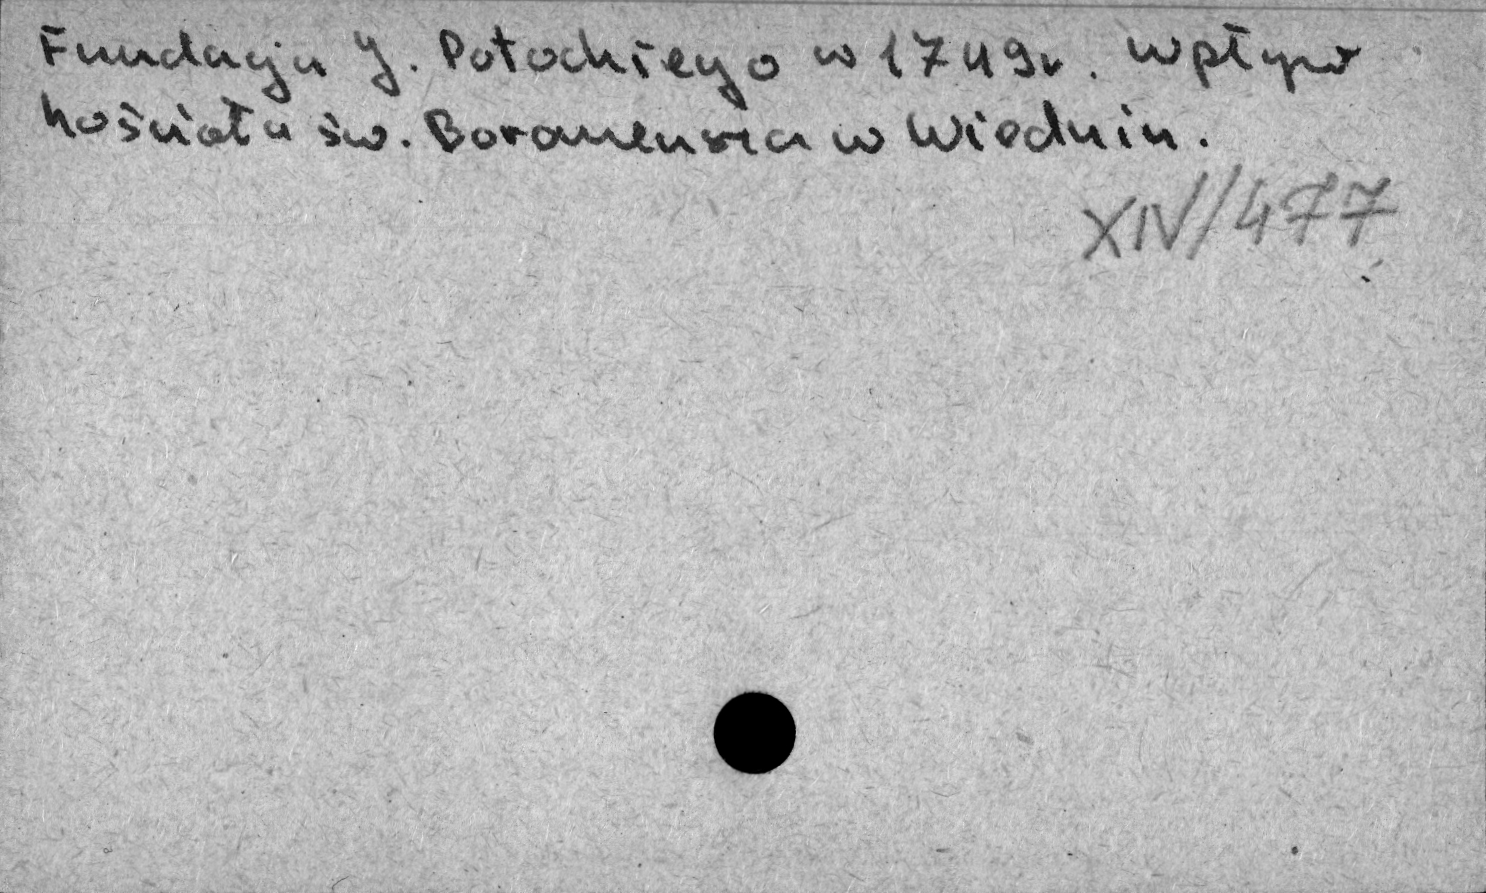 Fundacja J. Potockiego w 1749r. Wpływ
kościoła św. Boromeusza w Wiedniu.
XIV/477